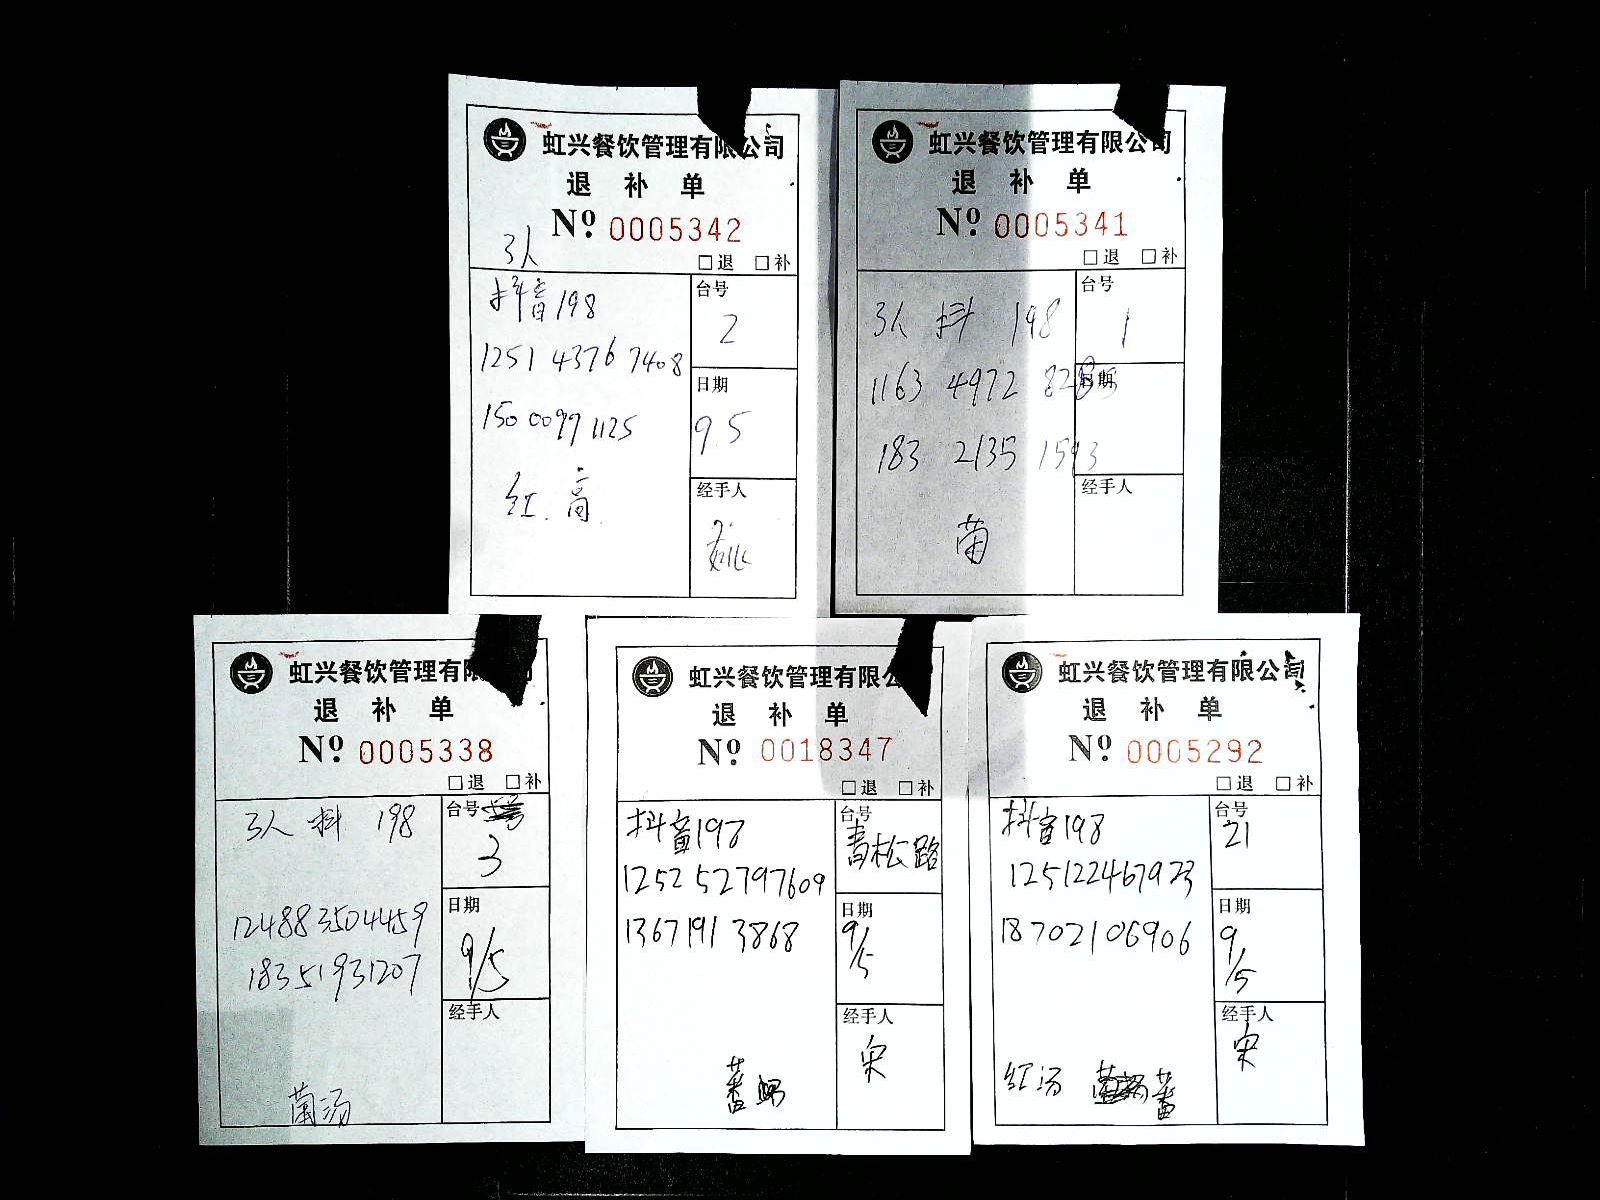 虹兴餐饮管理有限公司
退 补 单
Nº 0005342
3人
□退 □补
抖音198
1251 4376 7408
150 0097 1125
红.
台号
2
日期
9.5
经手人
虹兴餐饮管理有限公司
退 补 单
Nº 0005341
□退 □补
3人 抖 198
1163 4972
183 2135 1593
菌
台号
1
日期
经手人
虹兴餐饮管理有限
退 补 单
Nº 0005338
□退 □补
3人 抖 198
124883504459
18351931207
菌汤
台号
3
日期
9/5
经手人
虹兴餐饮管理有限公
退 补 单
Nº 0018347
□退 □补
抖音198
1252 52797609
1367191 3868
蕃
台号
青松路
日期
9/5
经手人
宋
虹兴餐饮管理有限公司
退 补 单
Nº 0005292
□退 □补
抖音198
125122467923
18702106906
红汤 蕃
台号
21
日期
9/5
经手人
宋